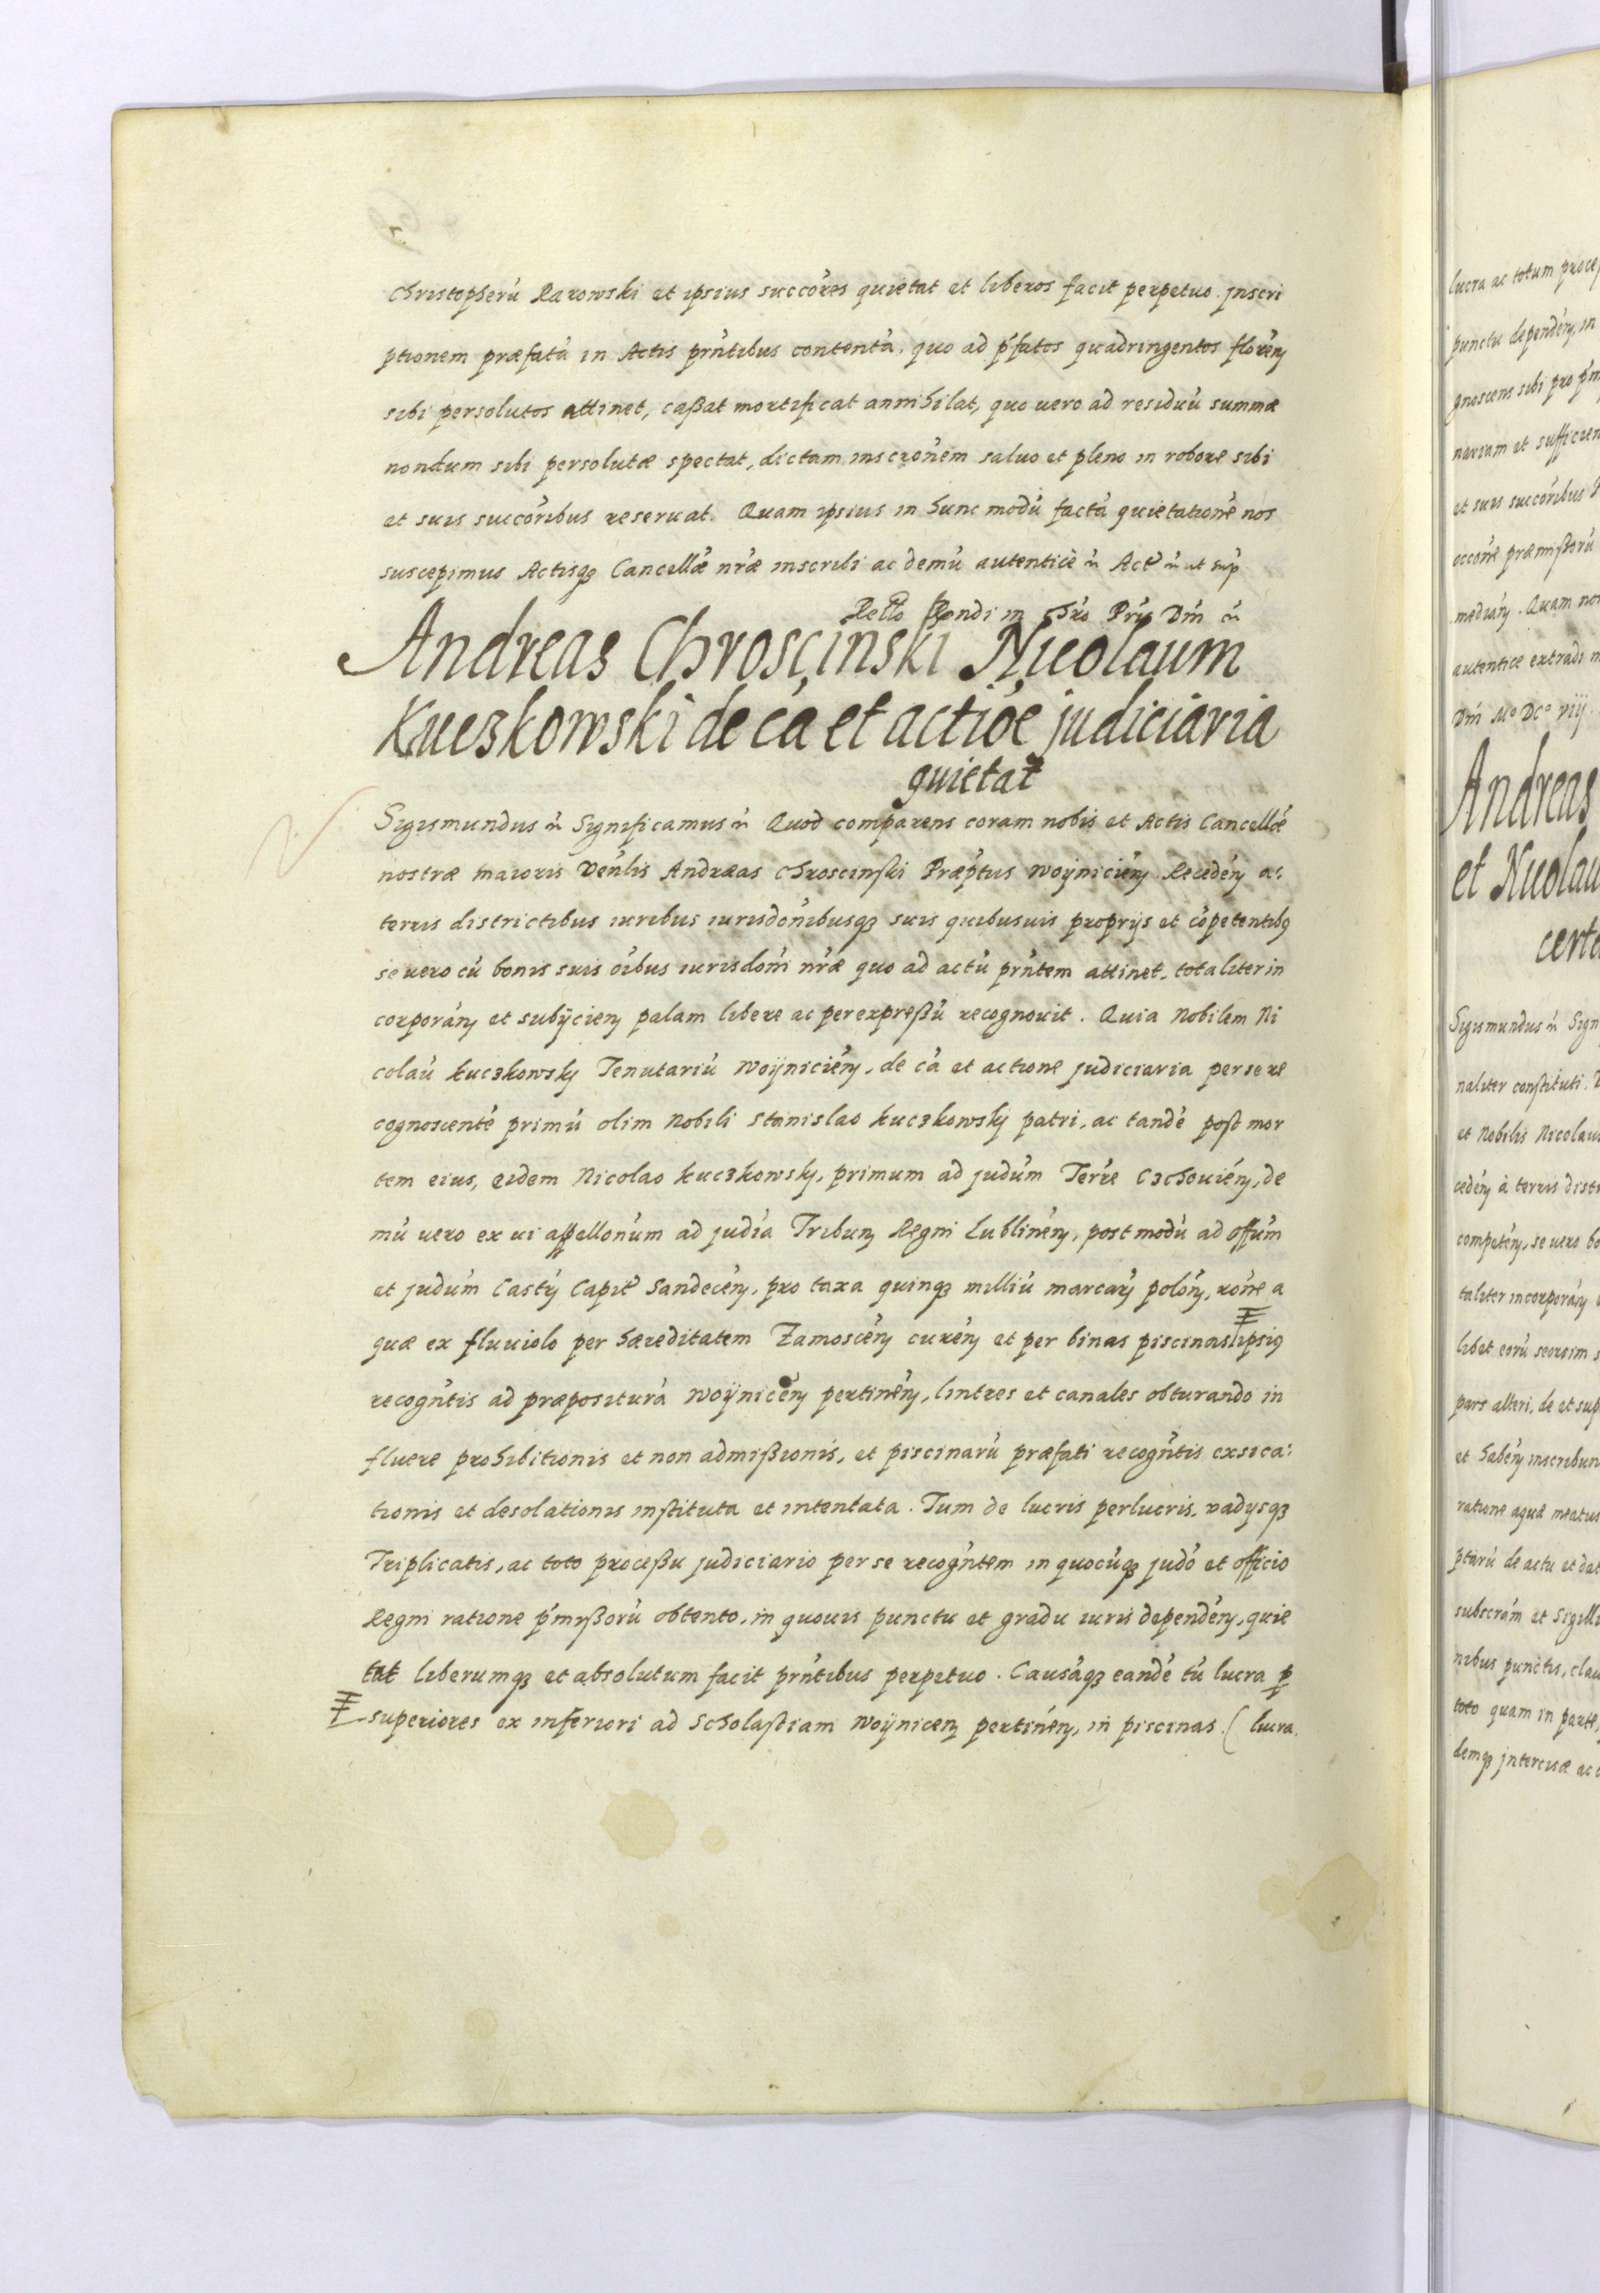 Christopherú Rarowski et ipsius succóres quietat et liberos facit perpetuo. Jnscri
ptionem præfatá in Actis prńtibus contentá, quo ad ṕfatos quadringentos florén
sibi persolutos attinet, caßat mortificat annihilat, quo uero ad residuú summæ
nondum sibi persolutæ spectat, dictam inscrōnem saluo et pleno in robore sibi
et suis succóribus reseruat. Quam ipsius in hunc modú factá quietationé nos
suscepimus Actisqȝ Cancellæ nŕæ inscribi ac demú autenticè
Andreas Chroscinski Nicolaum
Kuczkowski de cá et actióe judiciaria
quietat
Sigismundus Significamus Quod comparens coram nobis et Actis Cancellæ
nostræ maioris Vénlis Andreas Chroscinski Præṕtus Woÿnicień Recedéń a:
terris districtibus iuribus iurisdónibusqȝ suis quibusuis proprijs et cópetentibȝ
se uero cú bonis suis óibus iurisdóni nŕæ quo ad actú prńtem attinet, totaliter in
corporáń et subÿcień palam libere ac per expreßú recognouit. Quia Nobilem Ni
colaú Kuczkowskj Tenutariú Woÿnicień, de cá et actione judiciaria per se re
cognoscenté primú olim Nobili Stanislao Kuczkowskj patri, ac tandé post mor
tem eius, eidem Nicolao Kuczkowskj, primum ad judúm Terŕe Czchouień, de
mú uero ex ui appellonúm ad judía Tribuń Regni Lublinéń, post modú ad offúm
et judúm Castŕ Capit Sandecéń, pro taxa quinqȝ milliú marcarŕ polóń, róne a
quæ ex fluuiolo per hæreditatem Zamoscéń curéń et per binas piscinas ipsiȝ
recogńtis ad præpositurá Woÿnicéń pertinéń, lintres et canales obturando in
fluere prohibitionis et non admißionis, et piscinarú præfati recogńtis exsica:
tionis et desolationis instituta et intentata. Tum de lucris perlucris, vadysqȝ
Triplicatis, ac toto proceßu judiciario per se recogńtem in quocúqȝ judó et officio
Regni ratione ṕmißorú obtento, in quouis punctu et gradu iuris dependéń, quie
tat liberumqȝ et absolutum facit prńtibus perpetuo. Causáqȝ eandé tú lucra p
superiores ex inferiori ad Scholastiam Woÿniceń pertinéń, in piscinas. ( lucra.
lucra ac totum
punctu dependéń, in
gnoscens sibi pro
nariam et sufficien
et suis succóribus
præmißorú
Quam
autentice extradi
Andreas
et Nicolau
certa
Sigismundus Sign
naliter constituti.
et Nobilis Nicolau
cedéń à terris distr
competéń, se uero bo
taliter incorporáń
libet eorú seorsim
pars alteri, de et sup
et habéń inscribun
ratione aquæ meatus
ptarú de actu et dat
et Sigilli
nibus punctis, clau
toto quam in parte,
demqȝ jntercisæ ac